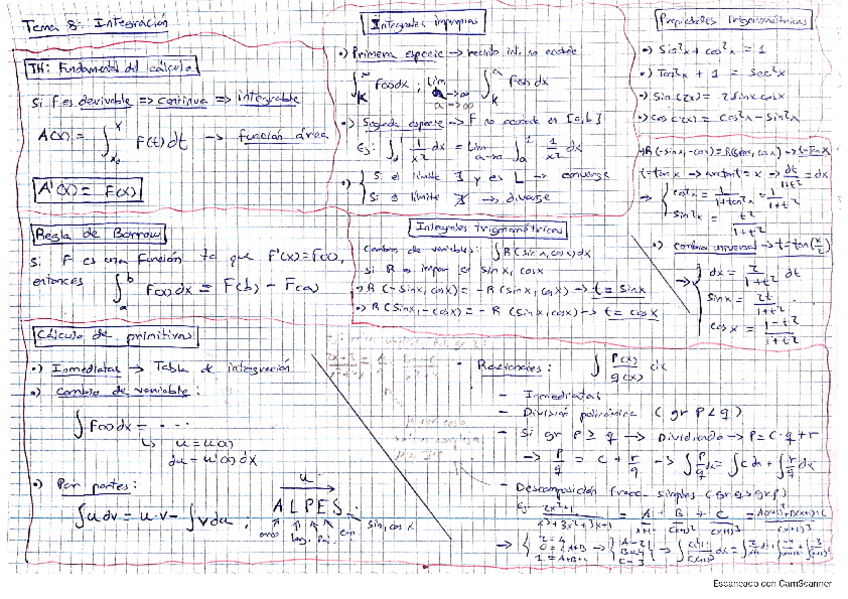 Tema 8: Integración
TH: Fundamental del cálculo
Si F es derivable => continua => integrable
A(x) = ∫_{x₀}^{x} F(t)dt → función área
A'(x) = F(x)
Regla de Barrow
Si F es una función tq que F'(x)=F(x),
entonces ∫_a^b F(x)dx = F(b) - F(a)
Cálculo de primitivas
•) Inmediatas → Tabla de integración
•) Cambio de variable:
∫F(x)dx = ...
↳ u = u(x)
du = u'(x)dx
•) Por partes:
∫u dv = u·v - ∫v du ;
u
ALPES
sin, cos x
Integrales impropias
•) Primera especie → recinto int. no acotado
∫_K^∞ F(x)dx ; lim_{a→∞} ∫_K^a F(x)dx
•) Segunda especie → F no acotada en [a,b]
Si el límite ∃ y es L → converge
Si el límite ∄ → diverge
Integrales trigonométricas
Cambios de variables: ∫R(sinx, cosx)dx
si R es impar el sinx, cosx
→ R(-sinx, cosx) = -R(sinx, cosx) → t = sinx
→ R(sinx, -cosx) = -R(sinx, cosx) → t = cosx
Propiedades trigonométricas
•) Sin²x + cos²x = 1
•) Tan²x + 1 = sec²x
•) Sin(2x) = 2sinx cosx
•) Cos(2x) = cos²x - sin²x
→ R(-sinx, -cosx) = R(sinx, cosx) → t = tanx
t = tanx → arctan t = x → dt/(1+t²) = dx
→ { cos²x = 1/(1+tan²x) = 1/(1+t²)
sin²x = t²/(1+t²)
•) Cambio universal → t = tan(x/2)
→ { dx = 2/(1+t²) dt
sinx = 2t/(1+t²)
cosx = (1-t²)/(1+t²)
• Racionales: ∫ P(x)/q(x) dx
- Inmediatas
- División polinómica (gr P < q)
- Si gr P ≥ q → Dividiendo → P = C·q + r
→ P/q = C + r/q → ∫P/q dx = ∫C dx + ∫r/q dx
- Descomposición fracc. simples (gr q > gr p)
Escaneado con CamScanner